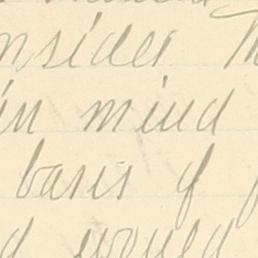 nsider
in mind
basis of
would